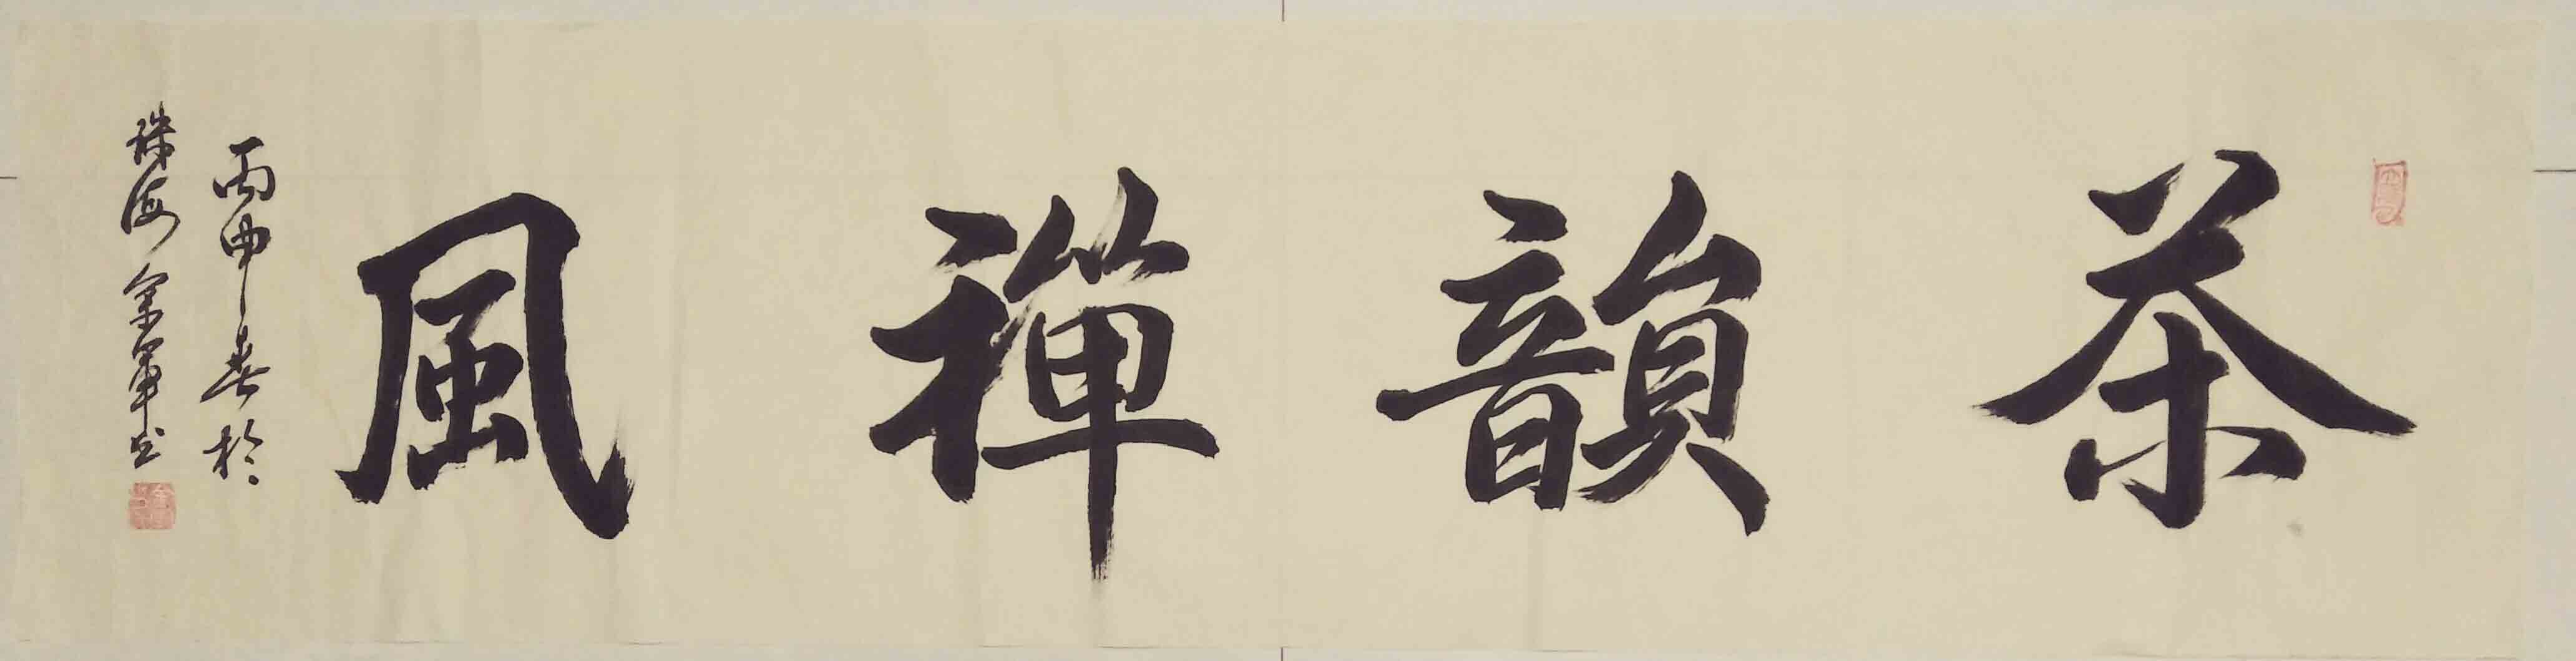 茶韻禪風
丙申春於
珠海余軍書